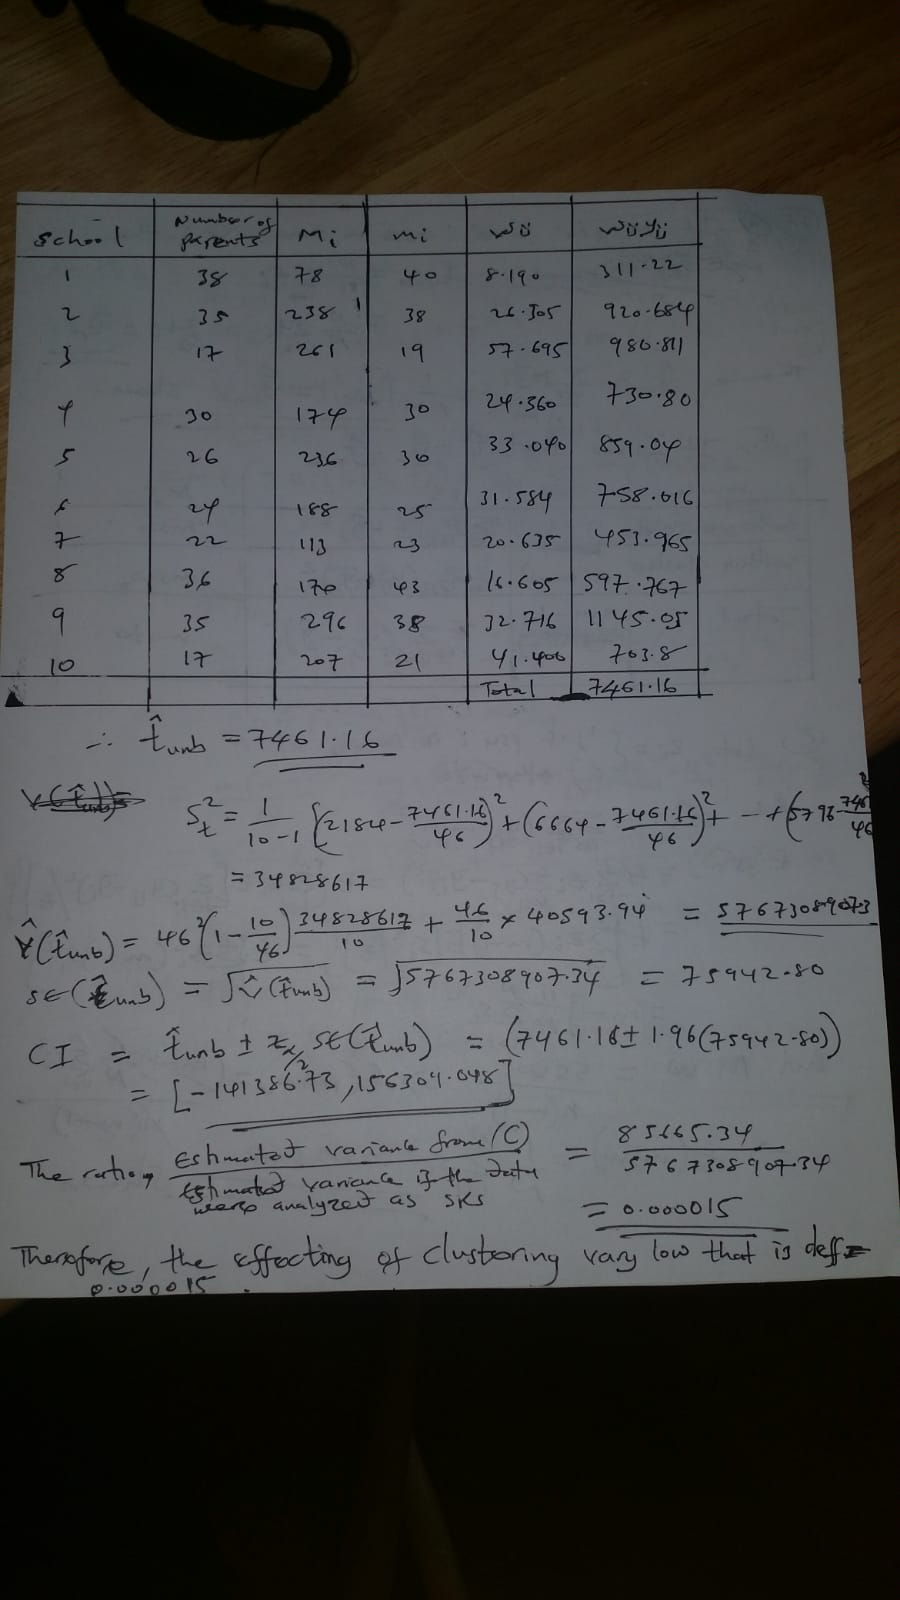 School | Number of parents | Mi | mi | wij | wijyij
1 | 38 | 78 | 40 | 8.190 | 311.22
2 | 35 | 238 | 38 | 26.305 | 920.684
3 | 17 | 261 | 19 | 57.695 | 980.811
4 | 30 | 174 | 30 | 24.360 | 730.80
5 | 26 | 236 | 30 | 33.040 | 859.04
6 | 24 | 188 | 25 | 31.584 | 758.016
7 | 22 | 113 | 23 | 20.635 | 453.965
8 | 36 | 170 | 43 | 16.605 | 597.767
9 | 35 | 296 | 38 | 32.716 | 1145.05
10 | 17 | 207 | 21 | 41.400 | 703.8
Total | 7461.16
∴ t̂unb = 7461.16
St² = 1/(10-1) [(2184 - 7461.16/46)² + (6664 - 7461.16/46)² + --- + (5796 - 746/46)²
= 34828617
V̂(t̂unb) = 46²(1 - 10/46) 34828617/10 + 46/10 × 40593.94 = 5767308907.3
SE(t̂unb) = √V̂(t̂unb) = √5767308907.34 = 75942.80
CI = t̂unb ± zα/2 SE(t̂unb) = (7461.16 ± 1.96(75942.80))
= [-141386.73, 156309.048]
The ratio, Estimated variance from (C) / Estimated variance if the data were analyzed as SRS = 85665.34 / 5767308907.34
= 0.000015
Therefore, the effecting of clustering vary low that is deff =
0.000015.